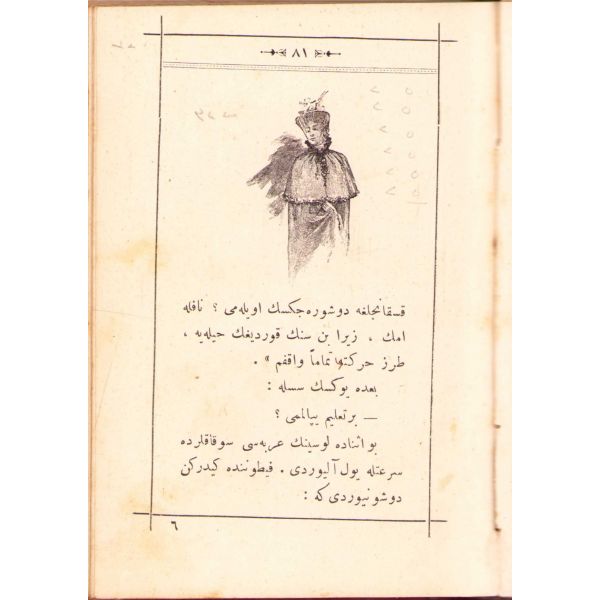 ٨١
قسقانجلغه دوشوره‌جكسك اويله‌مى ؟ نافله
امك ، زيرا بن سنك قورديغك حيله‌يه ،
طرز حركته تماماً واقفم » .
بعده يوكسك سسله :
— برتعليم يپالمى ؟
بو اثناده لوسينك عربه‌سى سوقاقلرده
سرعتله يول آليوردى . فيطوننده كيدركن
دوشونيوردى كه :
٦